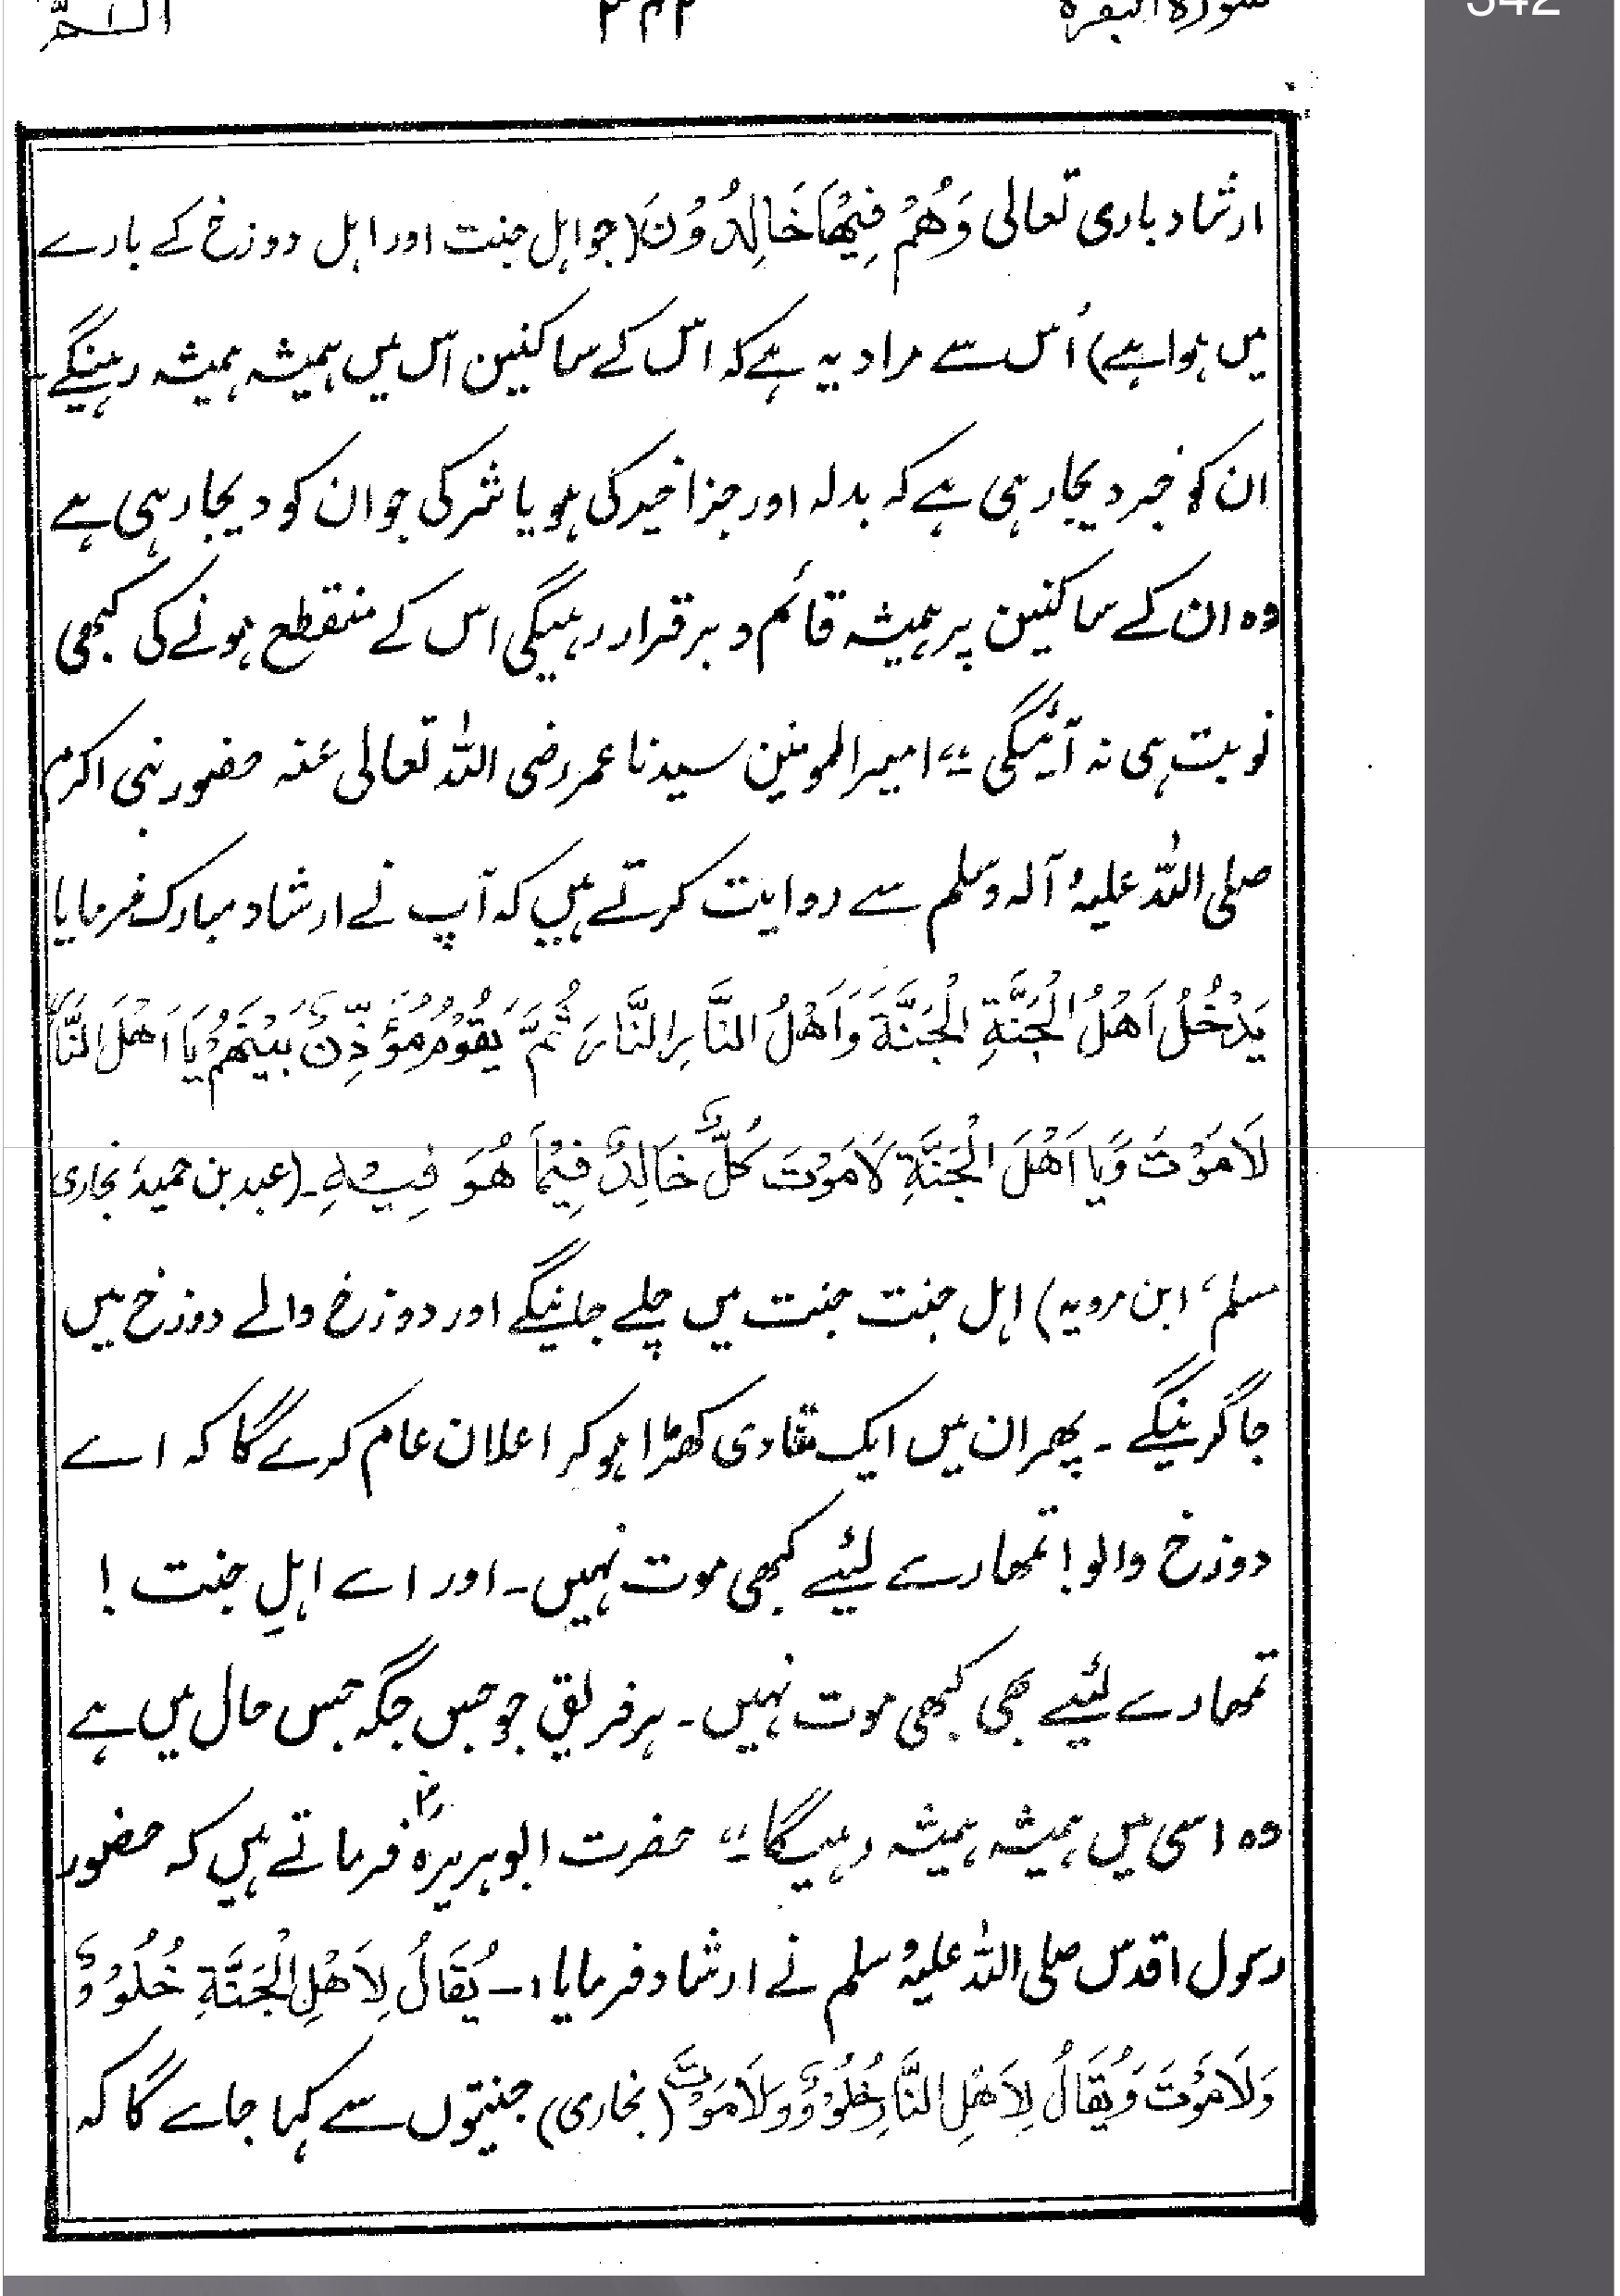 342
سورۃ البقرۃ ۳۴۲ الٓـمّٓ
ارشاد باری تعالی وَهُمْ فِيْهَا خَالِدُوْنَ (جو اہل جنت اور اہل دوزخ کے بارے
میں ہوا ہے) اُس سے مراد یہ ہے کہ اس کے ساکنین اس میں ہمیشہ ہمیشہ رہینگے۔
ان کو خبر دیجارہی ہے کہ بدلہ اور جزا خیر کی ہو یا شر کی جو ان کو دیجارہی ہے
وہ ان کے ساکنین پر ہمیشہ قائم و برقرار رہیگی اس کے منقطع ہونے کی کبھی
نوبت ہی نہ آئیگی ؛؛ امیر المومنین سیدنا عمر رضی اللہ تعالی عنہ حضور نبی اکرم
صلی اللہ علیہ و آلہ وسلم سے روایت کرتے ہیں کہ آپ نے ارشاد مبارک فرمایا
يَدْخُلُ اَهْلُ الْجَنَّةِ الْجَنَّةَ وَاَهْلُ النَّارِ النَّارَ ثُمَّ يَقُوْمُ مُؤَذِّنٌ بَيْنَهُمْ يَا اَهْلَ النَّارِ
لَا مَوْتَ وَيَا اَهْلَ الْجَنَّةِ لَا مَوْتَ كُلٌّ خَالِدٌ فِيْمَا هُوَ فِيْهِ۔ (عبد بن حمید، بخاری
مسلم، ابن مردویہ) اہل جنت جنت میں چلے جائینگے اور دوزخ والے دوزخ میں
جا گرینگے ۔ پھر ان میں ایک منادی کھڑا ہو کر اعلان عام کرے گا کہ اے
دوزخ والو! تمھارے لئیے کبھی موت نہیں ۔ اور اے اہلِ جنت !
تمھارے لئیے بھی کبھی موت نہیں ۔ ہر فریق جو جس جگہ جس حال میں ہے
وہ اسی میں ہمیشہ ہمیشہ رہیگا ؛؛ حضرت ابو ہریرہؓ فرماتے ہیں کہ حضور
رسول اقدس صلی اللہ علیہ وسلم نے ارشاد فرمایا :۔ يُقَالُ لِاَهْلِ الْجَنَّةِ خُلُوْدٌ
وَلَا مَوْتَ وَيُقَالُ لِاَهْلِ النَّارِ خُلُوْدٌ وَلَا مَوْتَ (بخاری) جنتیوں سے کہا جاے گا کہ